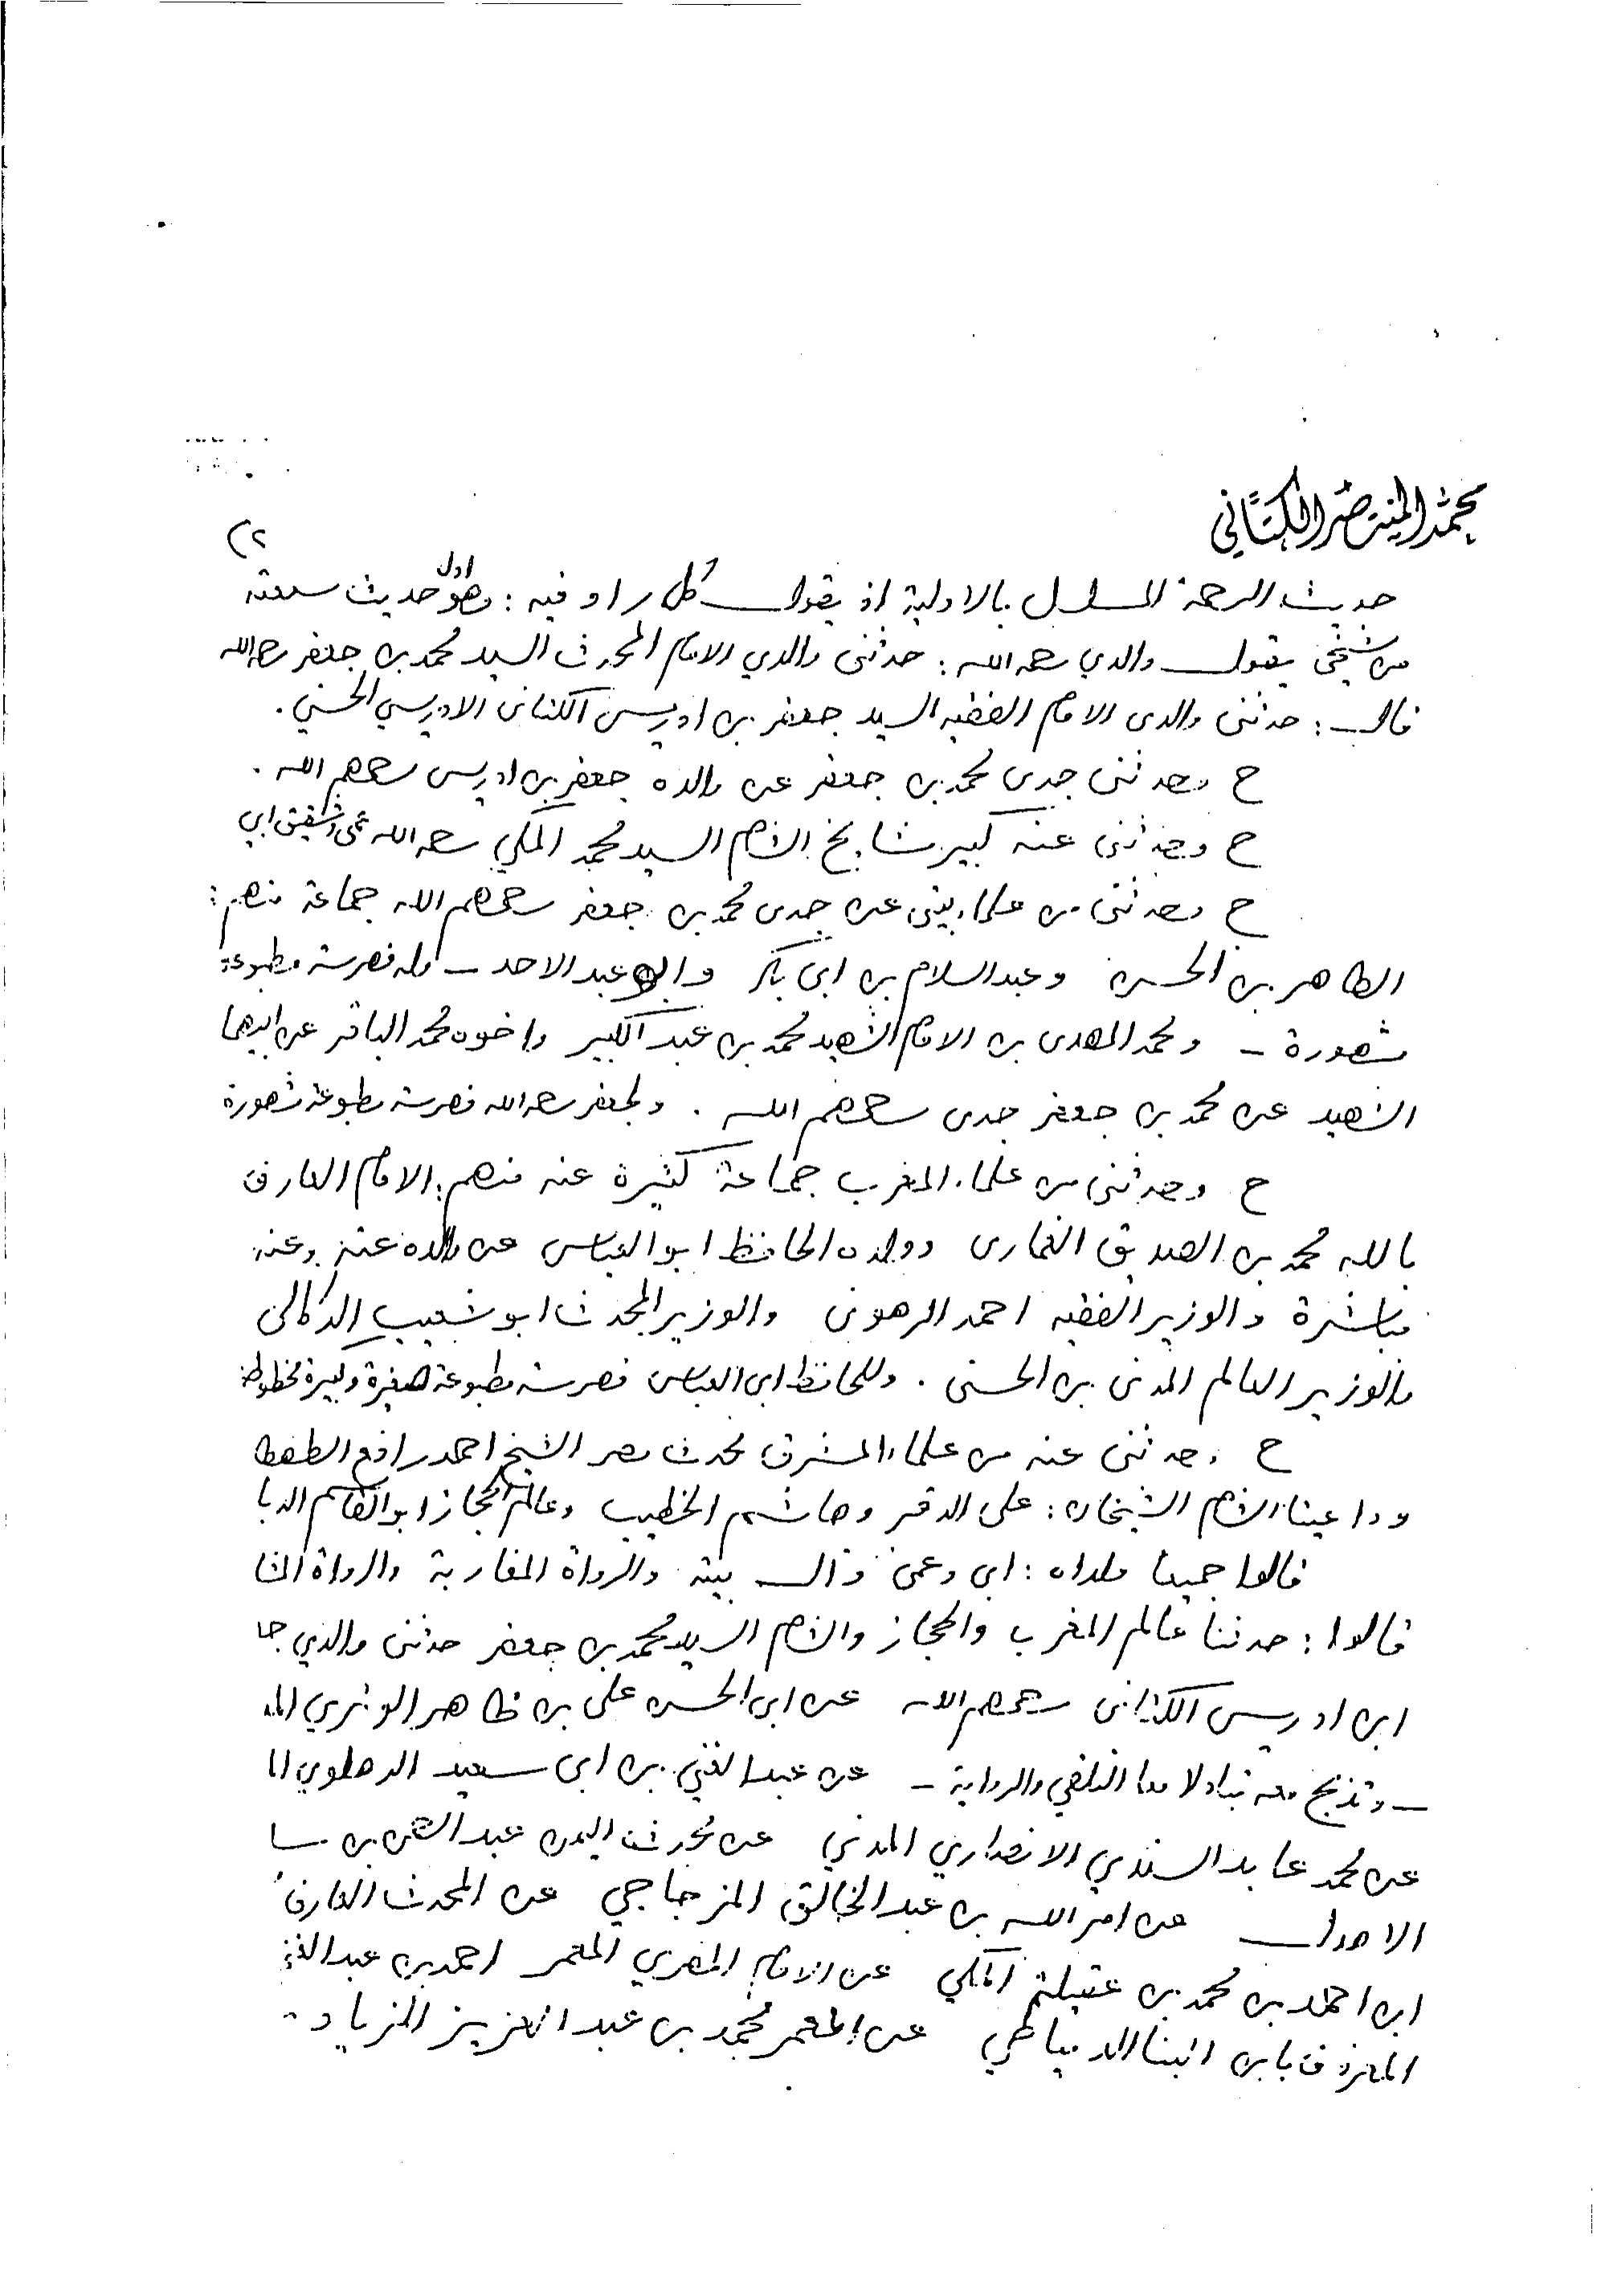 محمد المنتصر الكتاني
(٢
حديث الرحمة المسلسل بالاولية اذ يقول كل راو فيه : وهو اول حديث سمعته
من شيخي يقول والدي رحمه الله : حدثني والدي الامام المحدث السيد محمد بن جعفر رحمه الله
قال : حدثني والدي الامام الفقيه السيد جعفر بن ادريس الكتاني الادريسي الحسني .
ح وحدثني جدي محمد بن جعفر عن والده جعفر بن ادريس رحمهم الله .
ح وحدثني عنه كبير مشايخ الشام السيد محمد المكي رحمه الله عمي وشقيق ابي
ح وحدثني من علماء بيتي عن جدي محمد بن جعفر رحمهم الله جماعة منهم :
الطاهر بن الحسن وعبد السلام بن ابي بكر و عبد الاحد – وله فهرسة مطبوعة
مشهورة – ومحمد المهدي بن الامام الشهيد محمد بن عبد الكبير واخوه محمد الباقر عن ابيهما
الشهيد عن محمد بن جعفر جدي رحمهم الله . ولجعفر رحمه الله فهرسة مطبوعة مشهورة
ح وحدثني من علماء المغرب جماعة كثيرة عنه منهم : الامام العارف
بالله محمد بن الصديق الغماري وولده الحافظ ابو العباس عن والده عنه وعنه
مباشرة والوزير الفقيه احمد الرهوني والوزير المحدث ابو شعيب الدكالي
والوزير العالم المدني بن الحسني . وللحافظ ابي العباس فهرسة مطبوعة صغيرة وكبيرة مخطوطة
ح وحدثني عنه من علماء المشرق محدث مصر الشيخ احمد رافع الطهطا
وداعيتا الشام الشيخان : علي الدقر وهاشم الخطيب وعالم الحجاز ابو القاسم الدبا
قالوا جميعا ولداه : ابي وعمي وآل بيته والرواة المغاربة والرواة المشا
قالوا : حدثنا عالم المغرب والحجاز والشام السيد محمد بن جعفر حدثني والدي جا
ابن ادريس الكتاني رحمهم الله عن ابي الحسن علي بن ظاهر الوتري المد
– وتدبج معه تبادلا معا التلقي والرواية – عن عبد الغني بن ابي سعيد الدهلوي ا
عن محمد عابد السندي الانصاري المدني عن محدث اليمن عبد الرحمن بن سـ
الاهدل عن امر الله بن عبد الخالق المزجاجي عن المحدث العارف
ابن احمد بن محمد بن عقيلة المكي عن الامام المصري المعمر احمد بن عبد الغني
المعروف بابن البنا الدمياطي عن المعمر محمد بن عبد العزيز الزياد